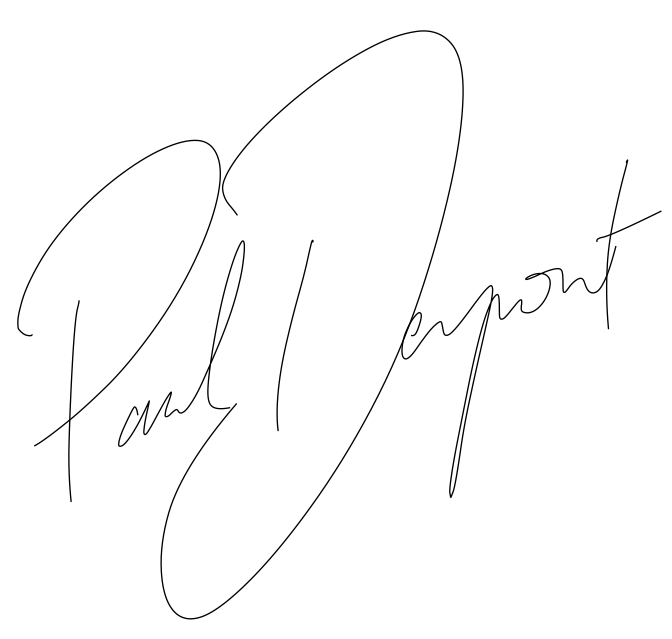 Paul Dupont